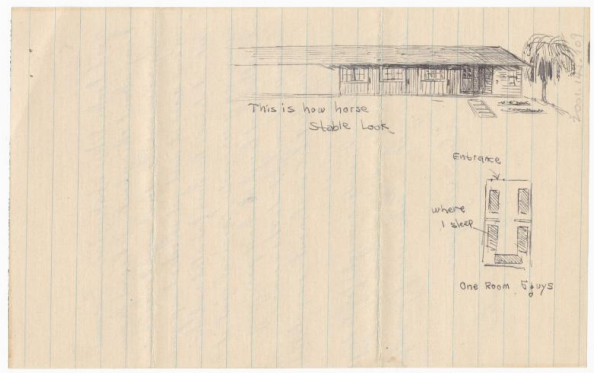 This is how horse
Stable Look
Entrance
where
I sleep
One Room 5 guys